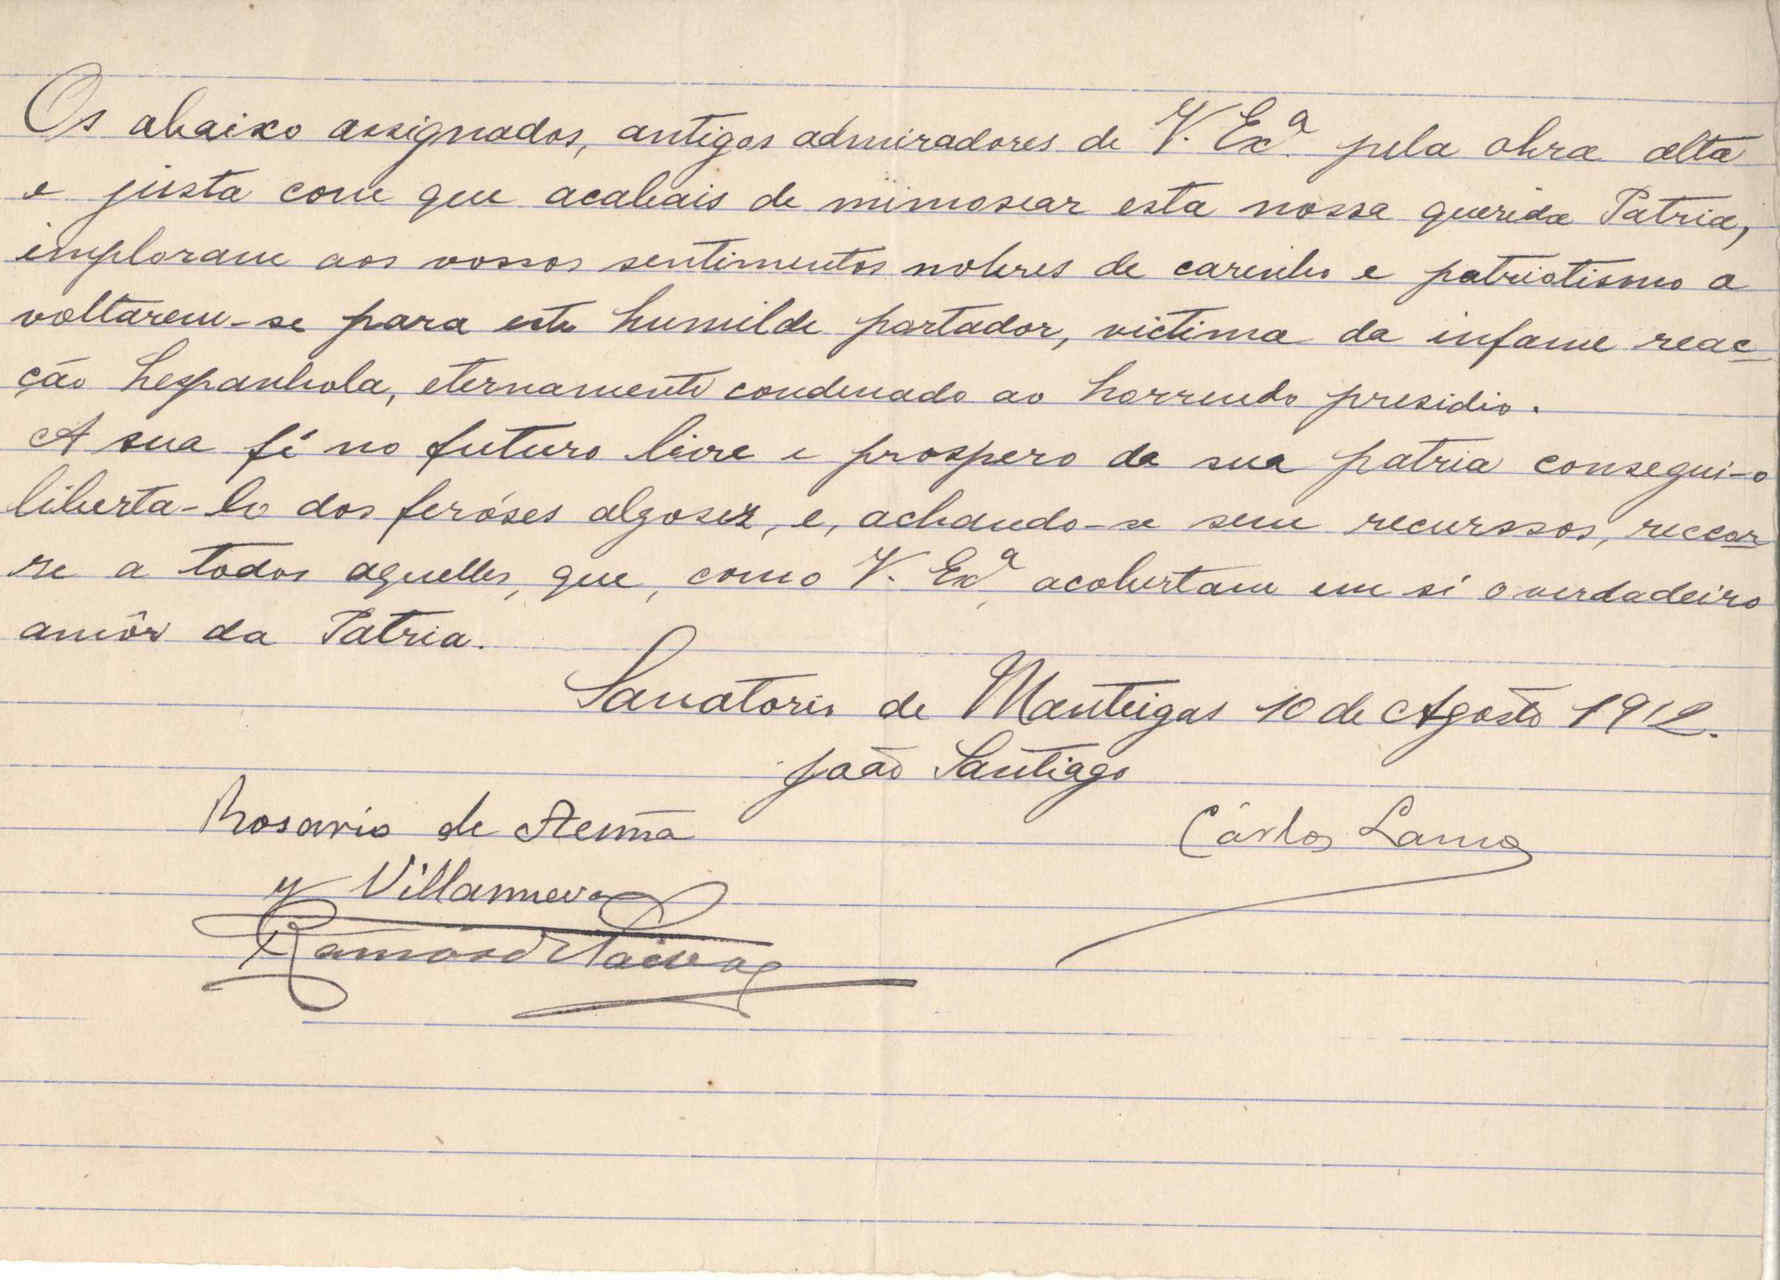 Os abaixo assignados, antigos admiradores de V. Exª. pela obra alta
e justa com que acabais de mimosear esta nossa querida Patria,
imploram aos vossos sentimentos nobres de carinho e patriotismo a
voltarem-se para este humilde portador, victima da infame reac
ção hespanhola, eternamente condenado ao horrendo presidio.
A sua fé no futuro livre e prospero da sua patria consegui-o
liberta-lo dos feróses algosez, e, achando-se sem recurssos, reccor
re a todos aquelles, que, como V. Exª, acobertam em sí o verdadeiro
amôr da Patria.
Sanatorio de Manteigas 10 de Agosto 1912.
João Santiago
Rosario de Acuña
Cárlos Lamo
y Villanueva
Ramos de Paiva